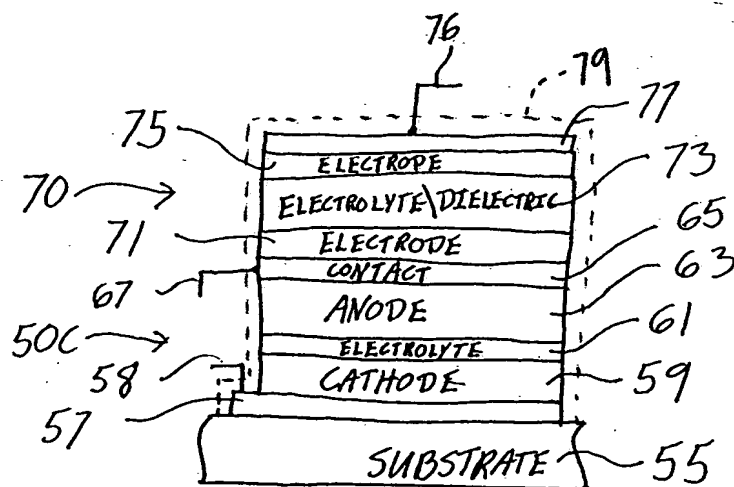 76
79
77
75
ELECTRODE
73
70
ELECTROLYTE\DIELECTRIC
65
71
ELECTRODE
CONTACT
63
67
ANODE
61
50C
ELECTROLYTE
58
CATHODE
59
57
SUBSTRATE
55